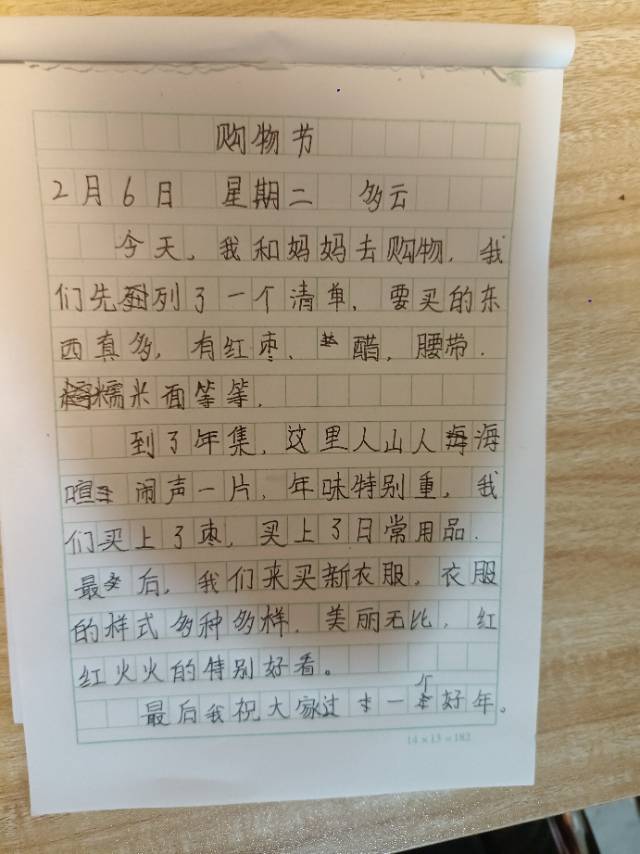 购物节
2月6日 星期二 多云
今天，我和妈妈去购物，我
们先列了一个清单，要买的东
西真多，有红枣、醋，腰带，
糯米面等等，
到了年集，这里人山人海
喧闹声一片，年味特别重，我
们买上了枣，买上了日常用品，
最后，我们来买新衣服，衣服
的样式多种多样，美丽无比，红
红火火的特别好看。
最后我祝大家过一个好年。
14×13=182